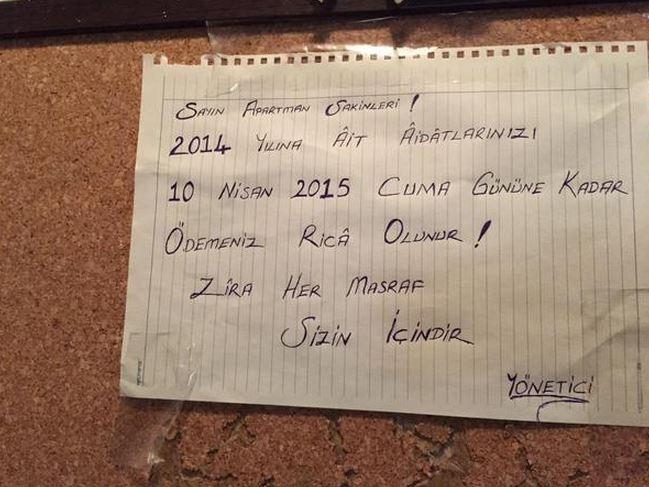 SAYIN APARTMAN SAKİNLERİ !
2014 YILINA ÂİT ÂİDÂTLARINIZI
10 NİSAN 2015 CUMA GÜNÜNE KADAR
ÖDEMENİZ RİCÂ OLUNUR !
ZÎRA HER MASRAF
SİZİN İÇİNDİR
YÖNETİCİ